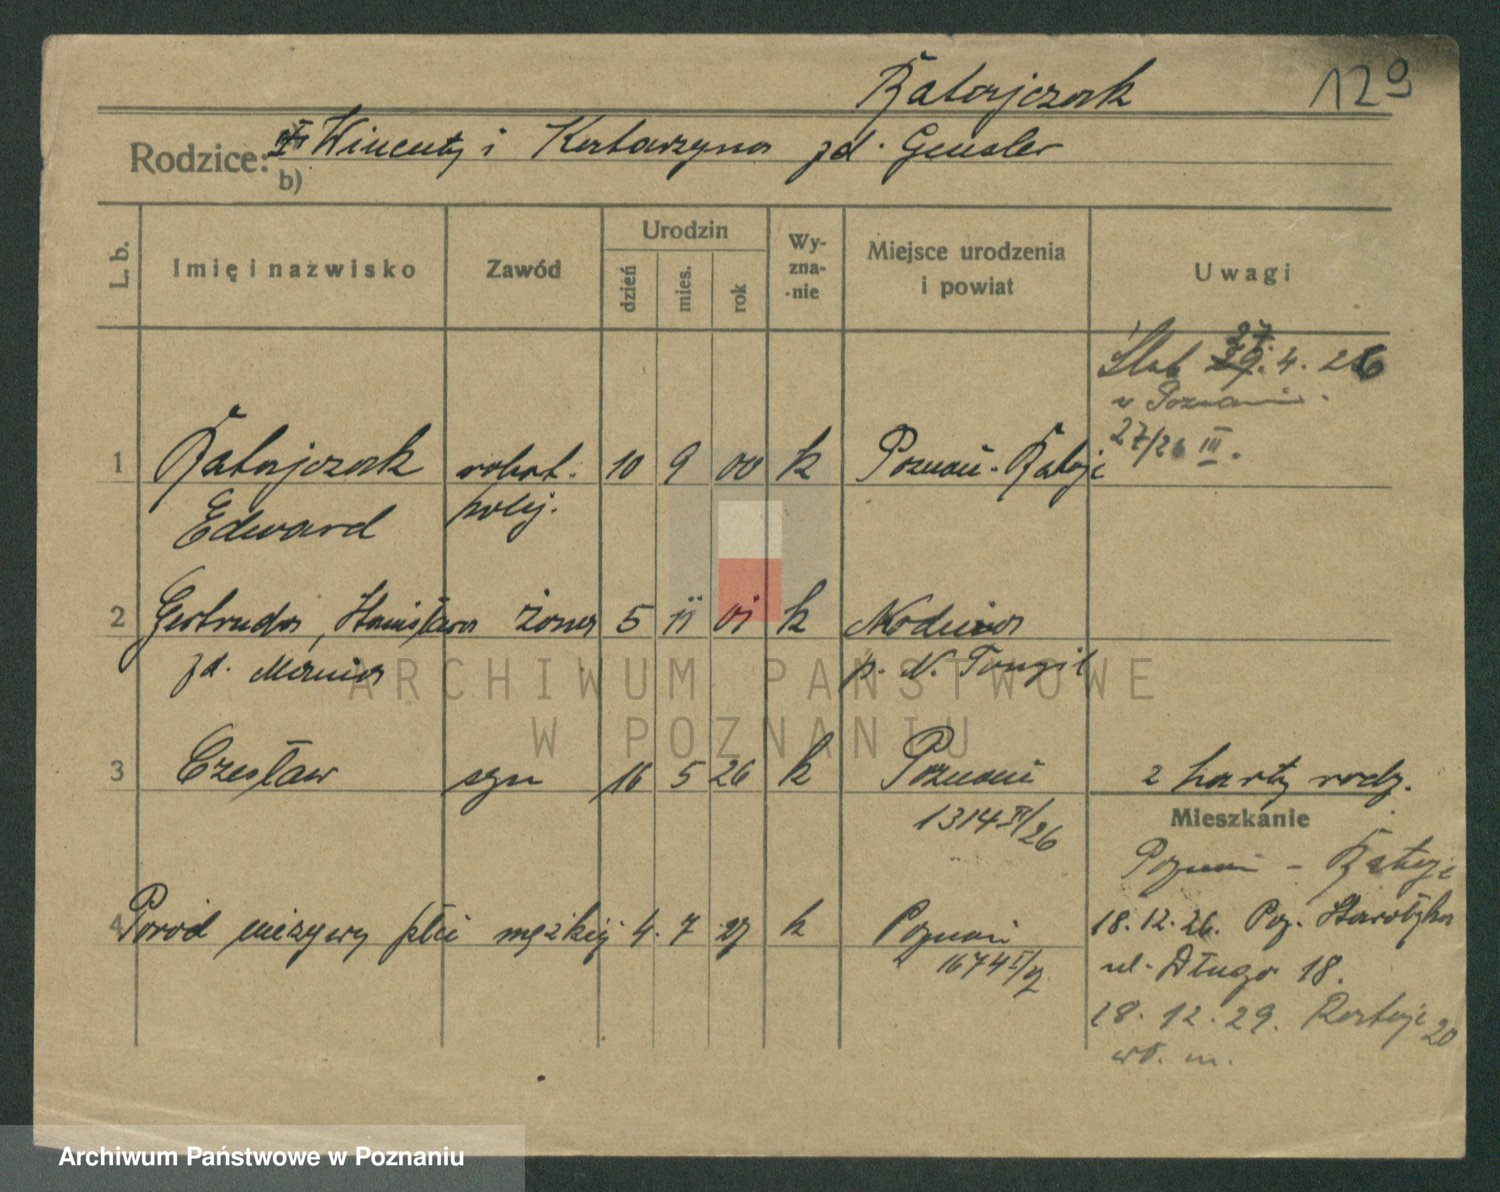 Ratajczak
129
Rodzice: Wincenty i Katarzyna zd. Gensler
b)
L. b.
Imię i nazwisko
Zawód
Urodzin
dzień
mies.
rok
Wy-
zna-
nie
Miejsce urodzenia
i powiat
Uwagi
Ślub 27. 4. 26
w Poznaniu.
27/26 III.
1 Ratajczak robot. 10 9 00 k Poznań-Rataje
Edward kolej.
2 Gertruda, Stanisława żona 5 11 01 k
zd. p. N.
3 Czesław syn 16 5 26 k Poznań z karty rodz.
1314 II/26
Mieszkanie
Poznań - Rataje
4 Poród nieżywy płci męzkiej 4. 7 27 k Poznań
1674 I/27
18.12.26. Poz. Starołęka
ul. Długa 18.
18.12.29. Rataje 20
wł. m.
ARCHIWUM PAŃSTWOWE
W POZNANIU
Archiwum Państwowe w Poznaniu